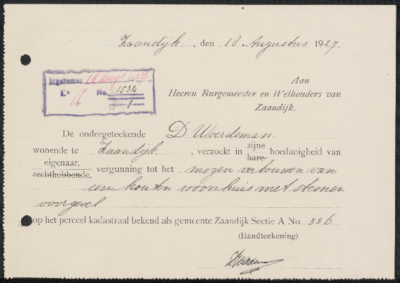 Zaandijk, den 13 Augustus 1927.
Ingekomen
No. 1532
Aan
Heeren Burgemeester en Wethouders van
Zaandijk.
De ondergeteekende D Woerdeman.
wonende te Zaandijk, verzoekt in zijne hare hoedanigheid van
eigenaar, rechthebbende, vergunning tot het mogen verbouwen van
een houten woonhuis met steenen
voorgevel
op het perceel kadastraal bekend als gemeente Zaandijk Sectie A No. 386
(Handteekening)